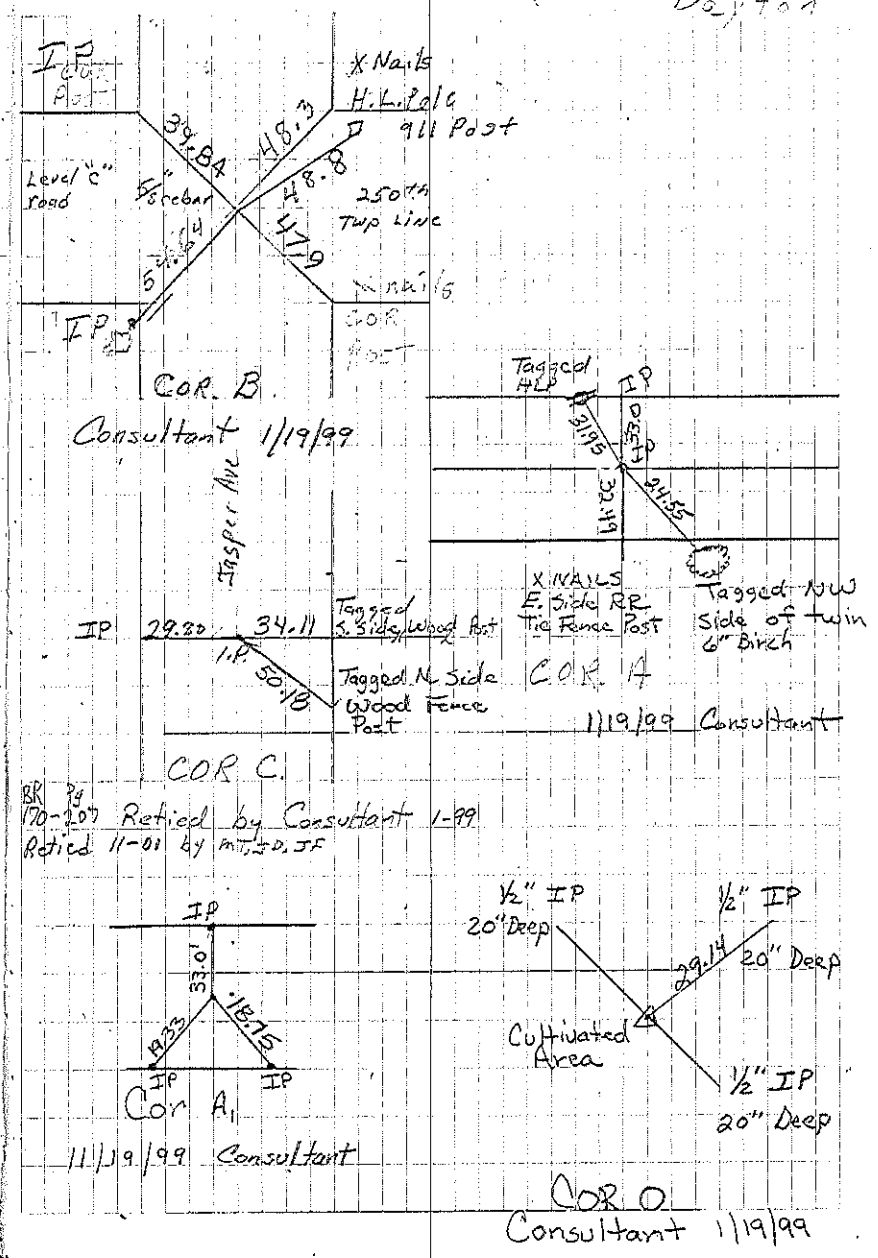 Dayton
IP
X Nails
H.L. Pole
911 Post
39.84
48.3
48.8
Level "C"
road
5/8" rebar
250th
Twp Line
54.64
47.9
X nails
COR
Post
IP
COR. B
Consultant 1/19/99
Tagged
HLP
IP
31.95
33.0
IP
32.49
24.55
X NAILS
E. Side RR
Tie Fence Post
Tagged NW
Side of twin
6" Birch
COR A
1/19/99 Consultant
Jasper Ave
IP
29.80
34.11
Tagged
S. Side Wood Post
I.P.
50.18
Tagged N. Side
Wood Fence
Post
COR C.
BK Pg
170-207 Retied by Consultant 1-99
Retied 11-01 by MT, JD, JF
IP
33.0'
19.33
18.75
IP
IP
Cor A1
11/19/99 Consultant
1/2" IP
20" Deep
1/2" IP
20" Deep
29.14
Cultivated
Area
1/2" IP
20" Deep
COR O
Consultant 1/19/99